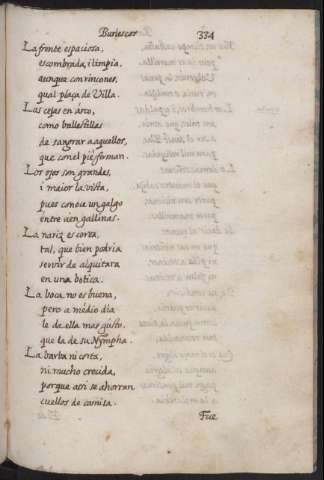 Burlescas 334
La frente espaciosa,
escombrada, i limpia,
aunque con rincones,
qual plaça de Villa.
Las cejas en árco,
como ballestillas
de sangrar a aquellos,
que con el pie forman.
Los ojos son grandes,
i maior la vista,
pues conoce un galgo
entre cien gallinas.
La nariz es corva,
tal, que bien podria
servir de alquitara
en una botica.
La boca no es buena,
pero a medio dia
le da ella mas gusto,
que la de su Nympha.
La barba ni corta,
ni mucho crecida,
porque assi se ahorran
cuellos de camisa.
Fue